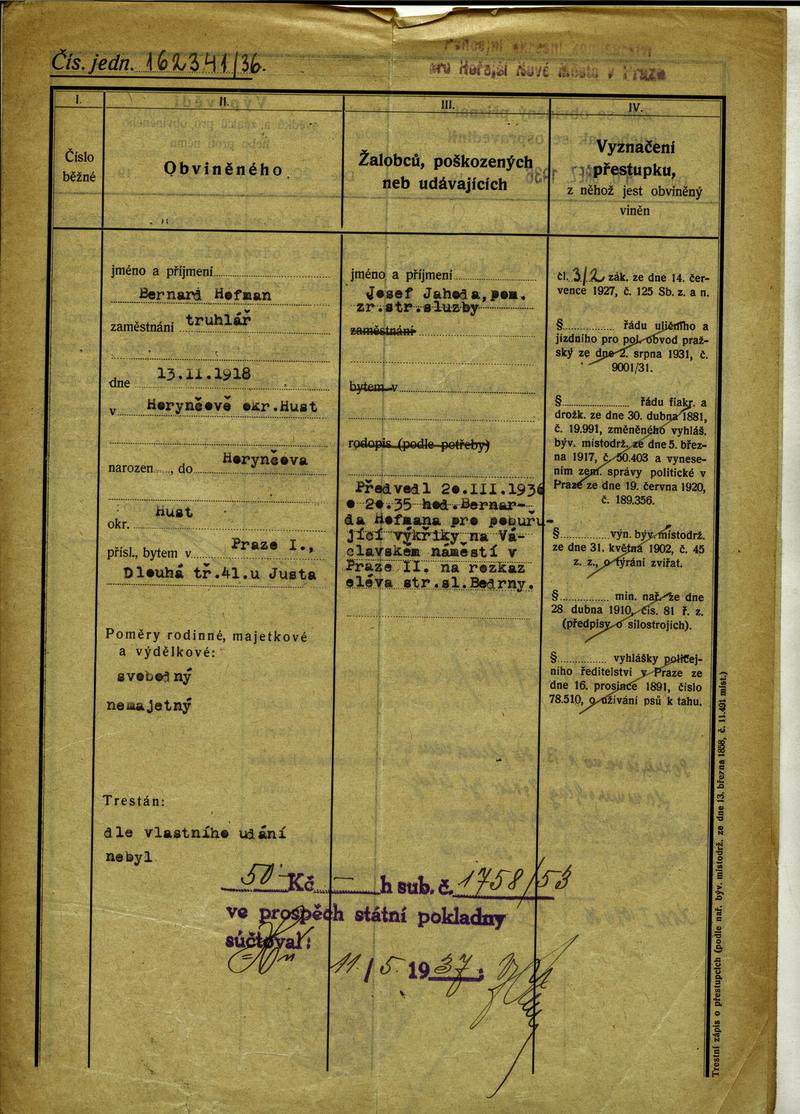 Čís. jedn. 162341/36.
pro Hořejší Nové Město v Praze
I.
II.
III.
IV.
Číslo
běžné
Obviněného.
Žalobců, poškozených
neb udávajících
Vyznačení
přestupku,
z něhož jest obviněný
viněn
jméno a příjmení
Bernard Hofman
zaměstnání truhlář
dne 13.II.1918
v Horynčově okr.Hust
narozen, do Horynčova
okr. Hust
přísl., bytem v Praze I.,
Dlouhá tř.41.u Justa
Poměry rodinné, majetkové
a výdělkové:
svobodný
nemajetný
Trestán:
dle vlastního udání
nebyl
jméno a příjmení
Josef Jahoda, pom.
zr.str.služby
zaměstnání
bytem v
rodopis (podle potřeby)
Předvedl 20.III.1936
o 20.35 hod.Bernar-
da Hofmana pro pobuřu-
jící výkřiky na Vá-
clavském náměstí v
Praze II. na rozkaz
eléva str.sl.Bedrny.
čl. 3/2 zák. ze dne 14. čer-
vence 1927, č. 125 Sb. z. a n.
§ řádu uličního a
jízdního pro pol. obvod praž-
ský ze dne 2. srpna 1931, č.
9001/31.
§ řádu fiakr. a
drožk. ze dne 30. dubna 1881,
č. 19.991, změněného vyhláš.
býv. místodrž. ze dne 5. břez-
na 1917, č. 50.403 a vynese-
ním zem. správy politické v
Praze ze dne 19. června 1920,
č. 189.356.
§ výn. býv. místodrž.
ze dne 31. května 1902, č. 45
z. z., o týrání zvířat.
§ min. nař. ze dne
28 dubna 1910, čís. 81 ř. z.
(předpisy o silostrojích).
§ vyhlášky policej-
ního ředitelství v Praze ze
dne 16. prosince 1891, číslo
78.510, o užívání psů k tahu.
50 Kč — h sub. č. 1758/53
ve prospěch státní pokladny
súčtoval:
11/5 1937:
Trestní zápis o přestupcích (podle nař. býv. místodrž. ze dne 13. března 1858, č. 11.491 míst.)